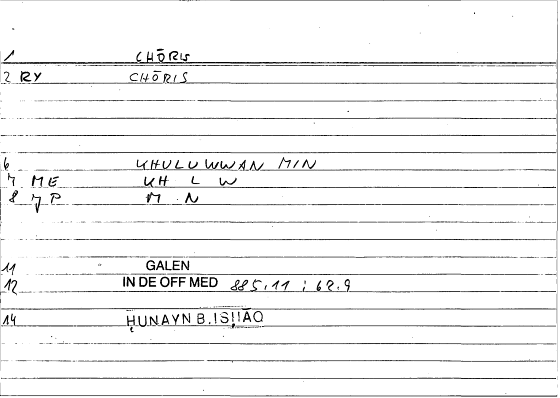 1 CHŌRIS
2 RY CHŌRIS
6 KHULUWWAN MIN
7 ME KH L W
8 JP M N
11 GALEN
12 IN DE OFF MED 885.11 ; 62.9
14 ḤUNAYN B. ISḤĀQ